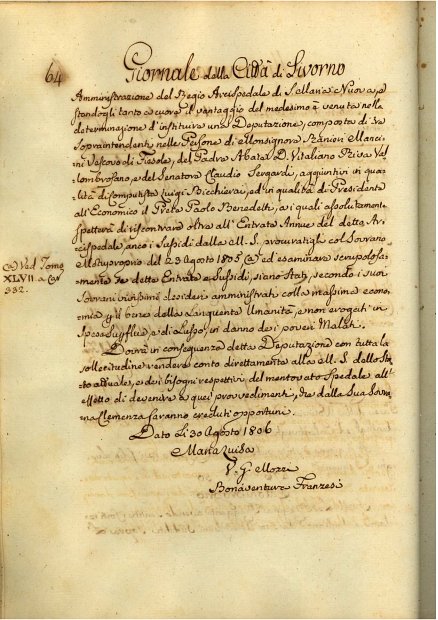 64
Giornale della Città di Livorno
Amministrazione del Regio Arcispedale di S. Maria Nuova, e
standogli tanto a cuore il vantaggio del medesimo è venuta nella
determinazione d'instituire una Deputazione, composta di tre
Sopraintendenti nelle Persone di Monsignore Ranieri Manci
ni Vescovo di Fiesole, del Padre Abate D. Vitaliano Val
lombrosano, e del Senatore Claudio Sergardi, aggiuntivi in qua
lità di Computista Luigi Bicchierai, ed in qualità di Presidente
all'Economico il Prete Paolo Benedetti, a i quali assolutamente
spetterà di riscontrare oltre all'Entrate Annue del detto Ar
cispedale, anco i Sussidi dalla M. S. procuratigli col Sovrano
Motuproprio del dì 23 Agosto 1805 (a) ed esaminare scrupolosa
mente se dette Entrate e Sussidi, siano stati, secondo i suoi
Sovrani vivissimi desideri amministrati colla massima econo
mia p il bene della Languente Umanità, e non erogati in
Spese Supflue, e di Lusso, in danno dei poveri Malati.
Dovrà in conseguenza detta Deputazione con tutta la
sollecitudine rendere conto direttamente alla M. S. dello Sta
to attuale, e dei bisogni respettivi del mentovato Spedale all'
effetto di devenire a quei provvedimenti, che dalla Sua Sovra
na Clemenza saranno creduti opportuni.
Dato Li 30 Agosto 1806
Maria Luisa
V. G. Mozzi
Bonaventura Franzesi
(a) Ved. Tomo
XLVII. a Car
332.